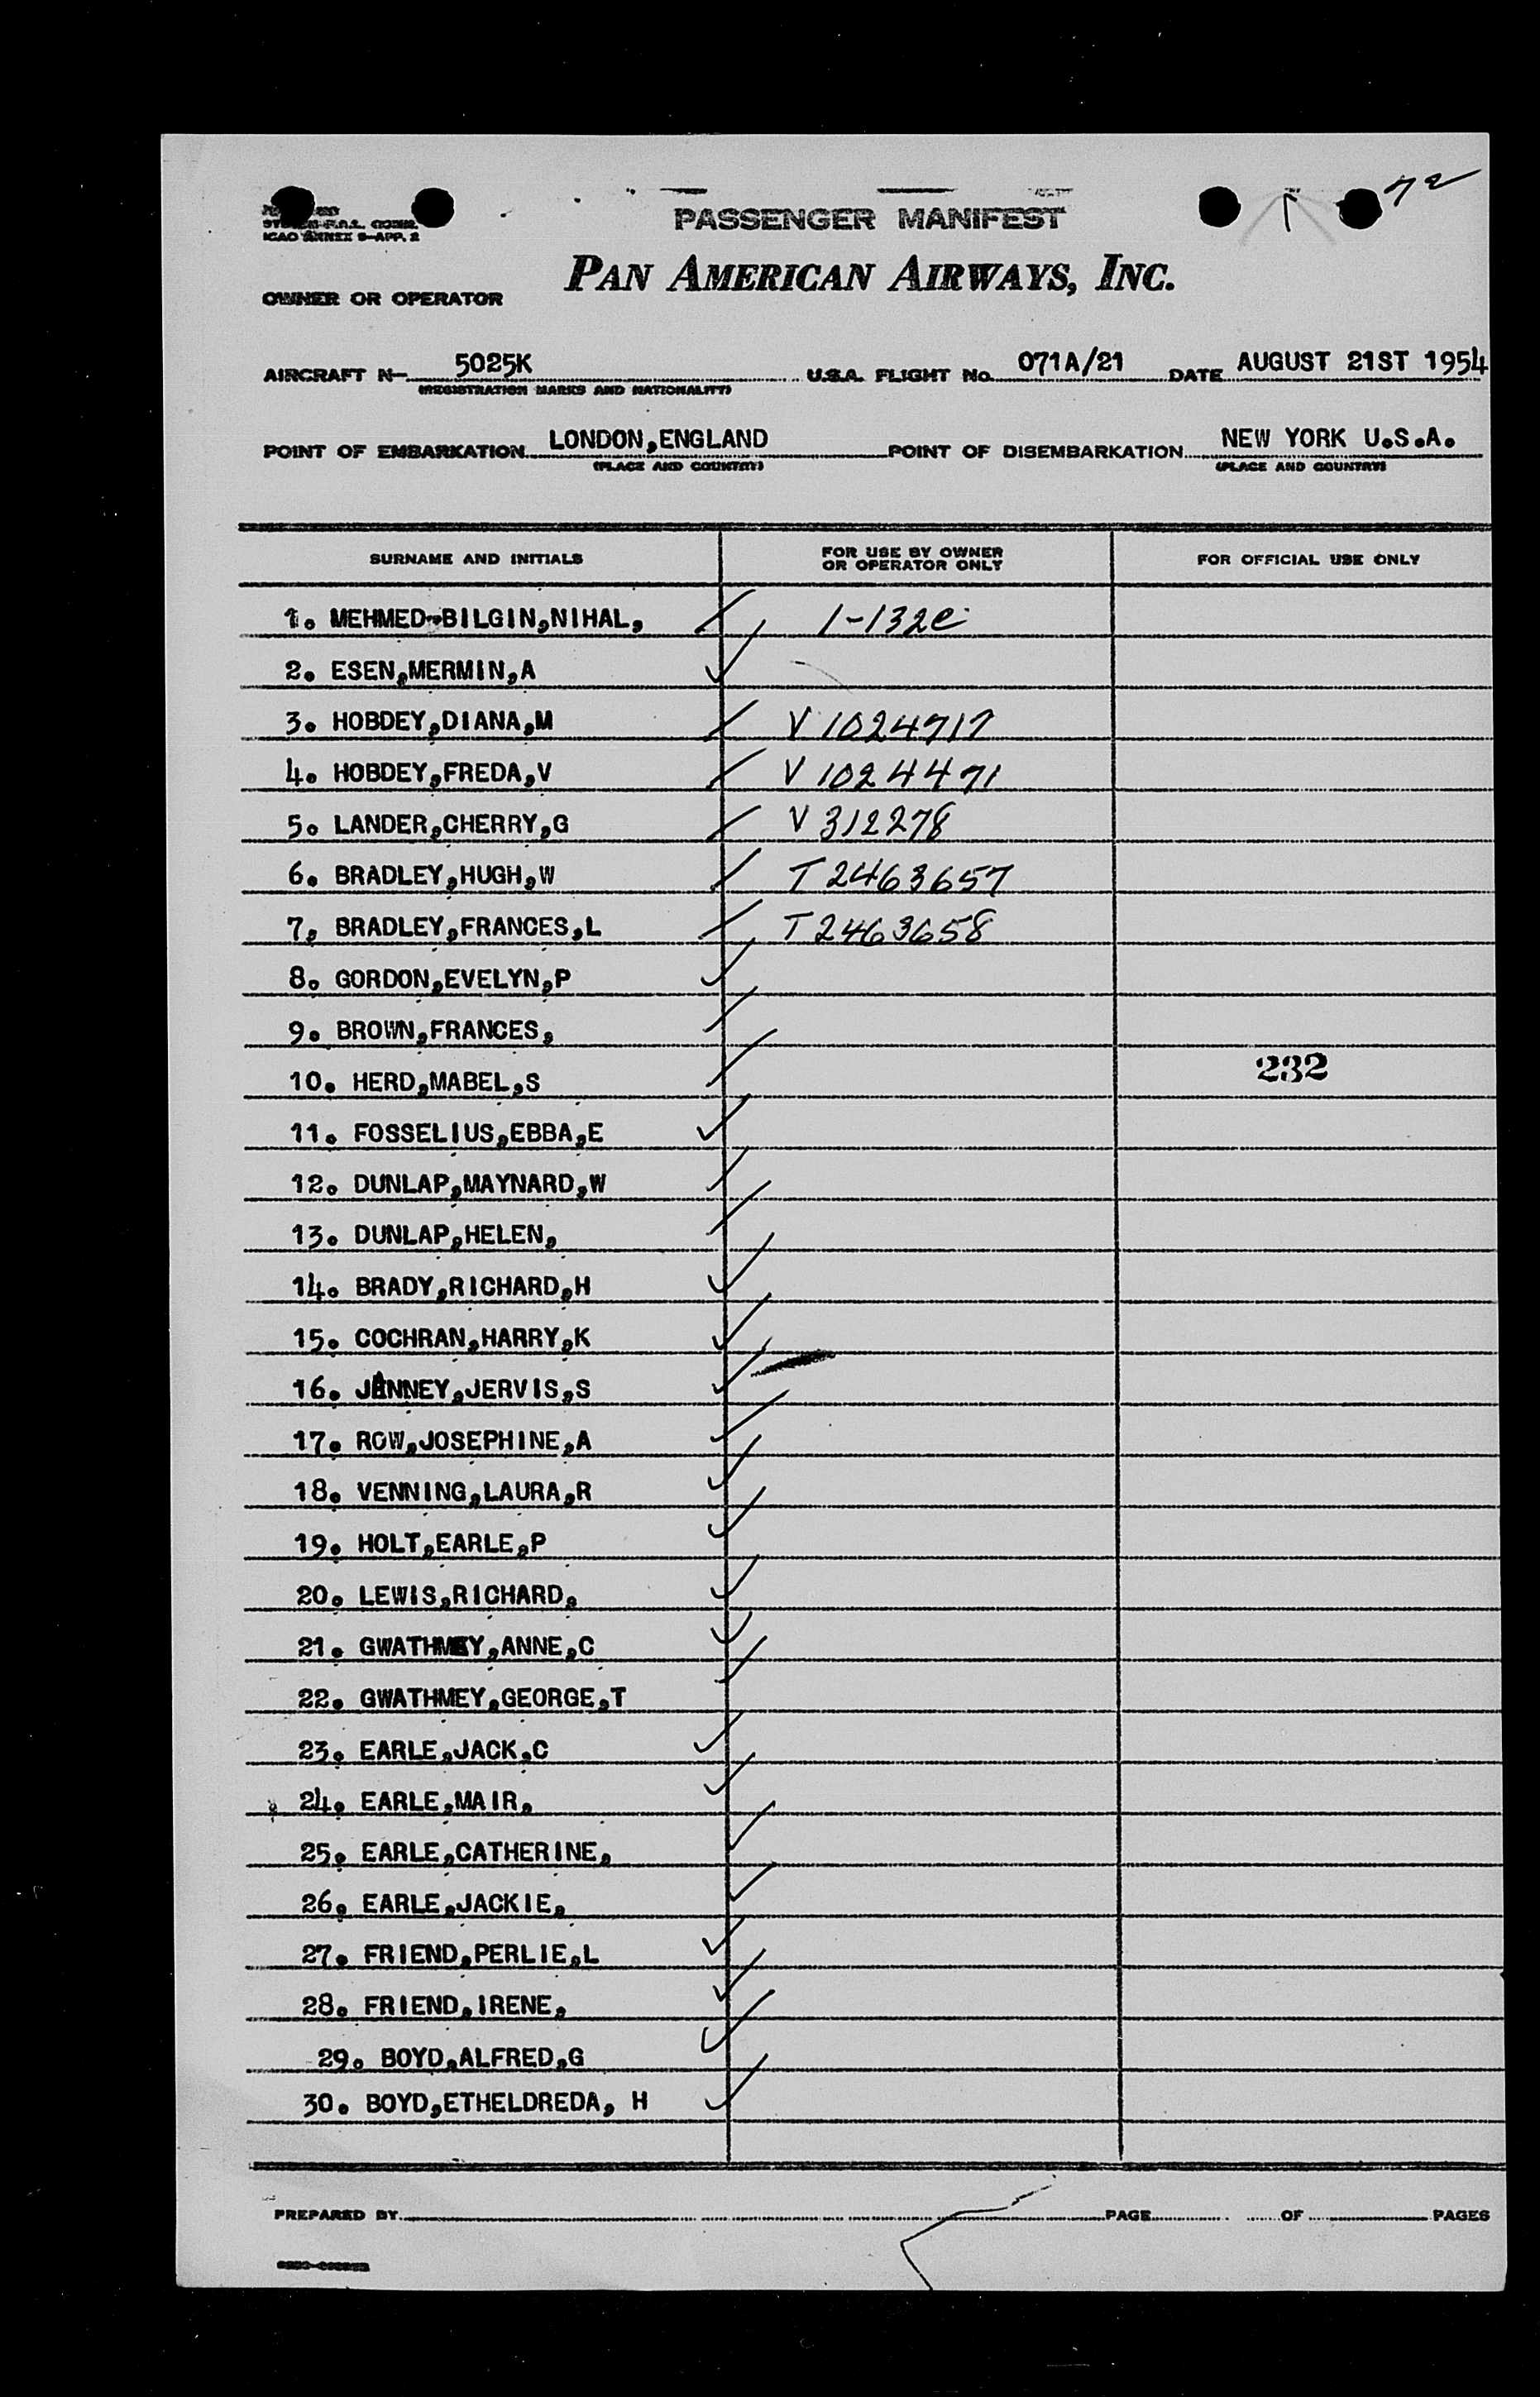 72
PASSENGER MANIFEST
ICAO ANNEX 9-APP. 2
PAN AMERICAN AIRWAYS, INC.
OWNER OR OPERATOR
AIRCRAFT N- 5025K U.S.A. FLIGHT No. 071A/21 DATE AUGUST 21ST 1954
(REGISTRATION MARKS AND NATIONALITY)
POINT OF EMBARKATION LONDON,ENGLAND POINT OF DISEMBARKATION NEW YORK U.S.A.
(PLACE AND COUNTRY) (PLACE AND COUNTRY)
SURNAME AND INITIALS FOR USE BY OWNER OR OPERATOR ONLY FOR OFFICIAL USE ONLY
1. MEHMED-BILGIN,NIHAL, 1-132e
2. ESEN,MERMIN,A
3. HOBDEY,DIANA,M V 1024717
4. HOBDEY,FREDA,V V 1024471
5. LANDER,CHERRY,G V 312278
6. BRADLEY,HUGH,W T 2463657
7, BRADLEY,FRANCES,L T 2463658
8. GORDON,EVELYN,P
9. BROWN,FRANCES,
10. HERD,MABEL,S 232
11. FOSSELIUS,EBBA,E
12. DUNLAP,MAYNARD,W
13. DUNLAP,HELEN,
14. BRADY,RICHARD,H
15. COCHRAN,HARRY,K
16. JANNEY,JERVIS,S
17. ROW,JOSEPHINE,A
18. VENNING,LAURA,R
19. HOLT,EARLE,P
20. LEWIS,RICHARD,
21. GWATHMEY,ANNE,C
22. GWATHMEY,GEORGE,T
23. EARLE,JACK,C
24. EARLE,MAIR,
25. EARLE,CATHERINE,
26. EARLE,JACKIE,
27. FRIEND,PERLIE,L
28. FRIEND,IRENE,
29. BOYD,ALFRED,G
30. BOYD,ETHELDREDA, H
PREPARED BY PAGE OF PAGES